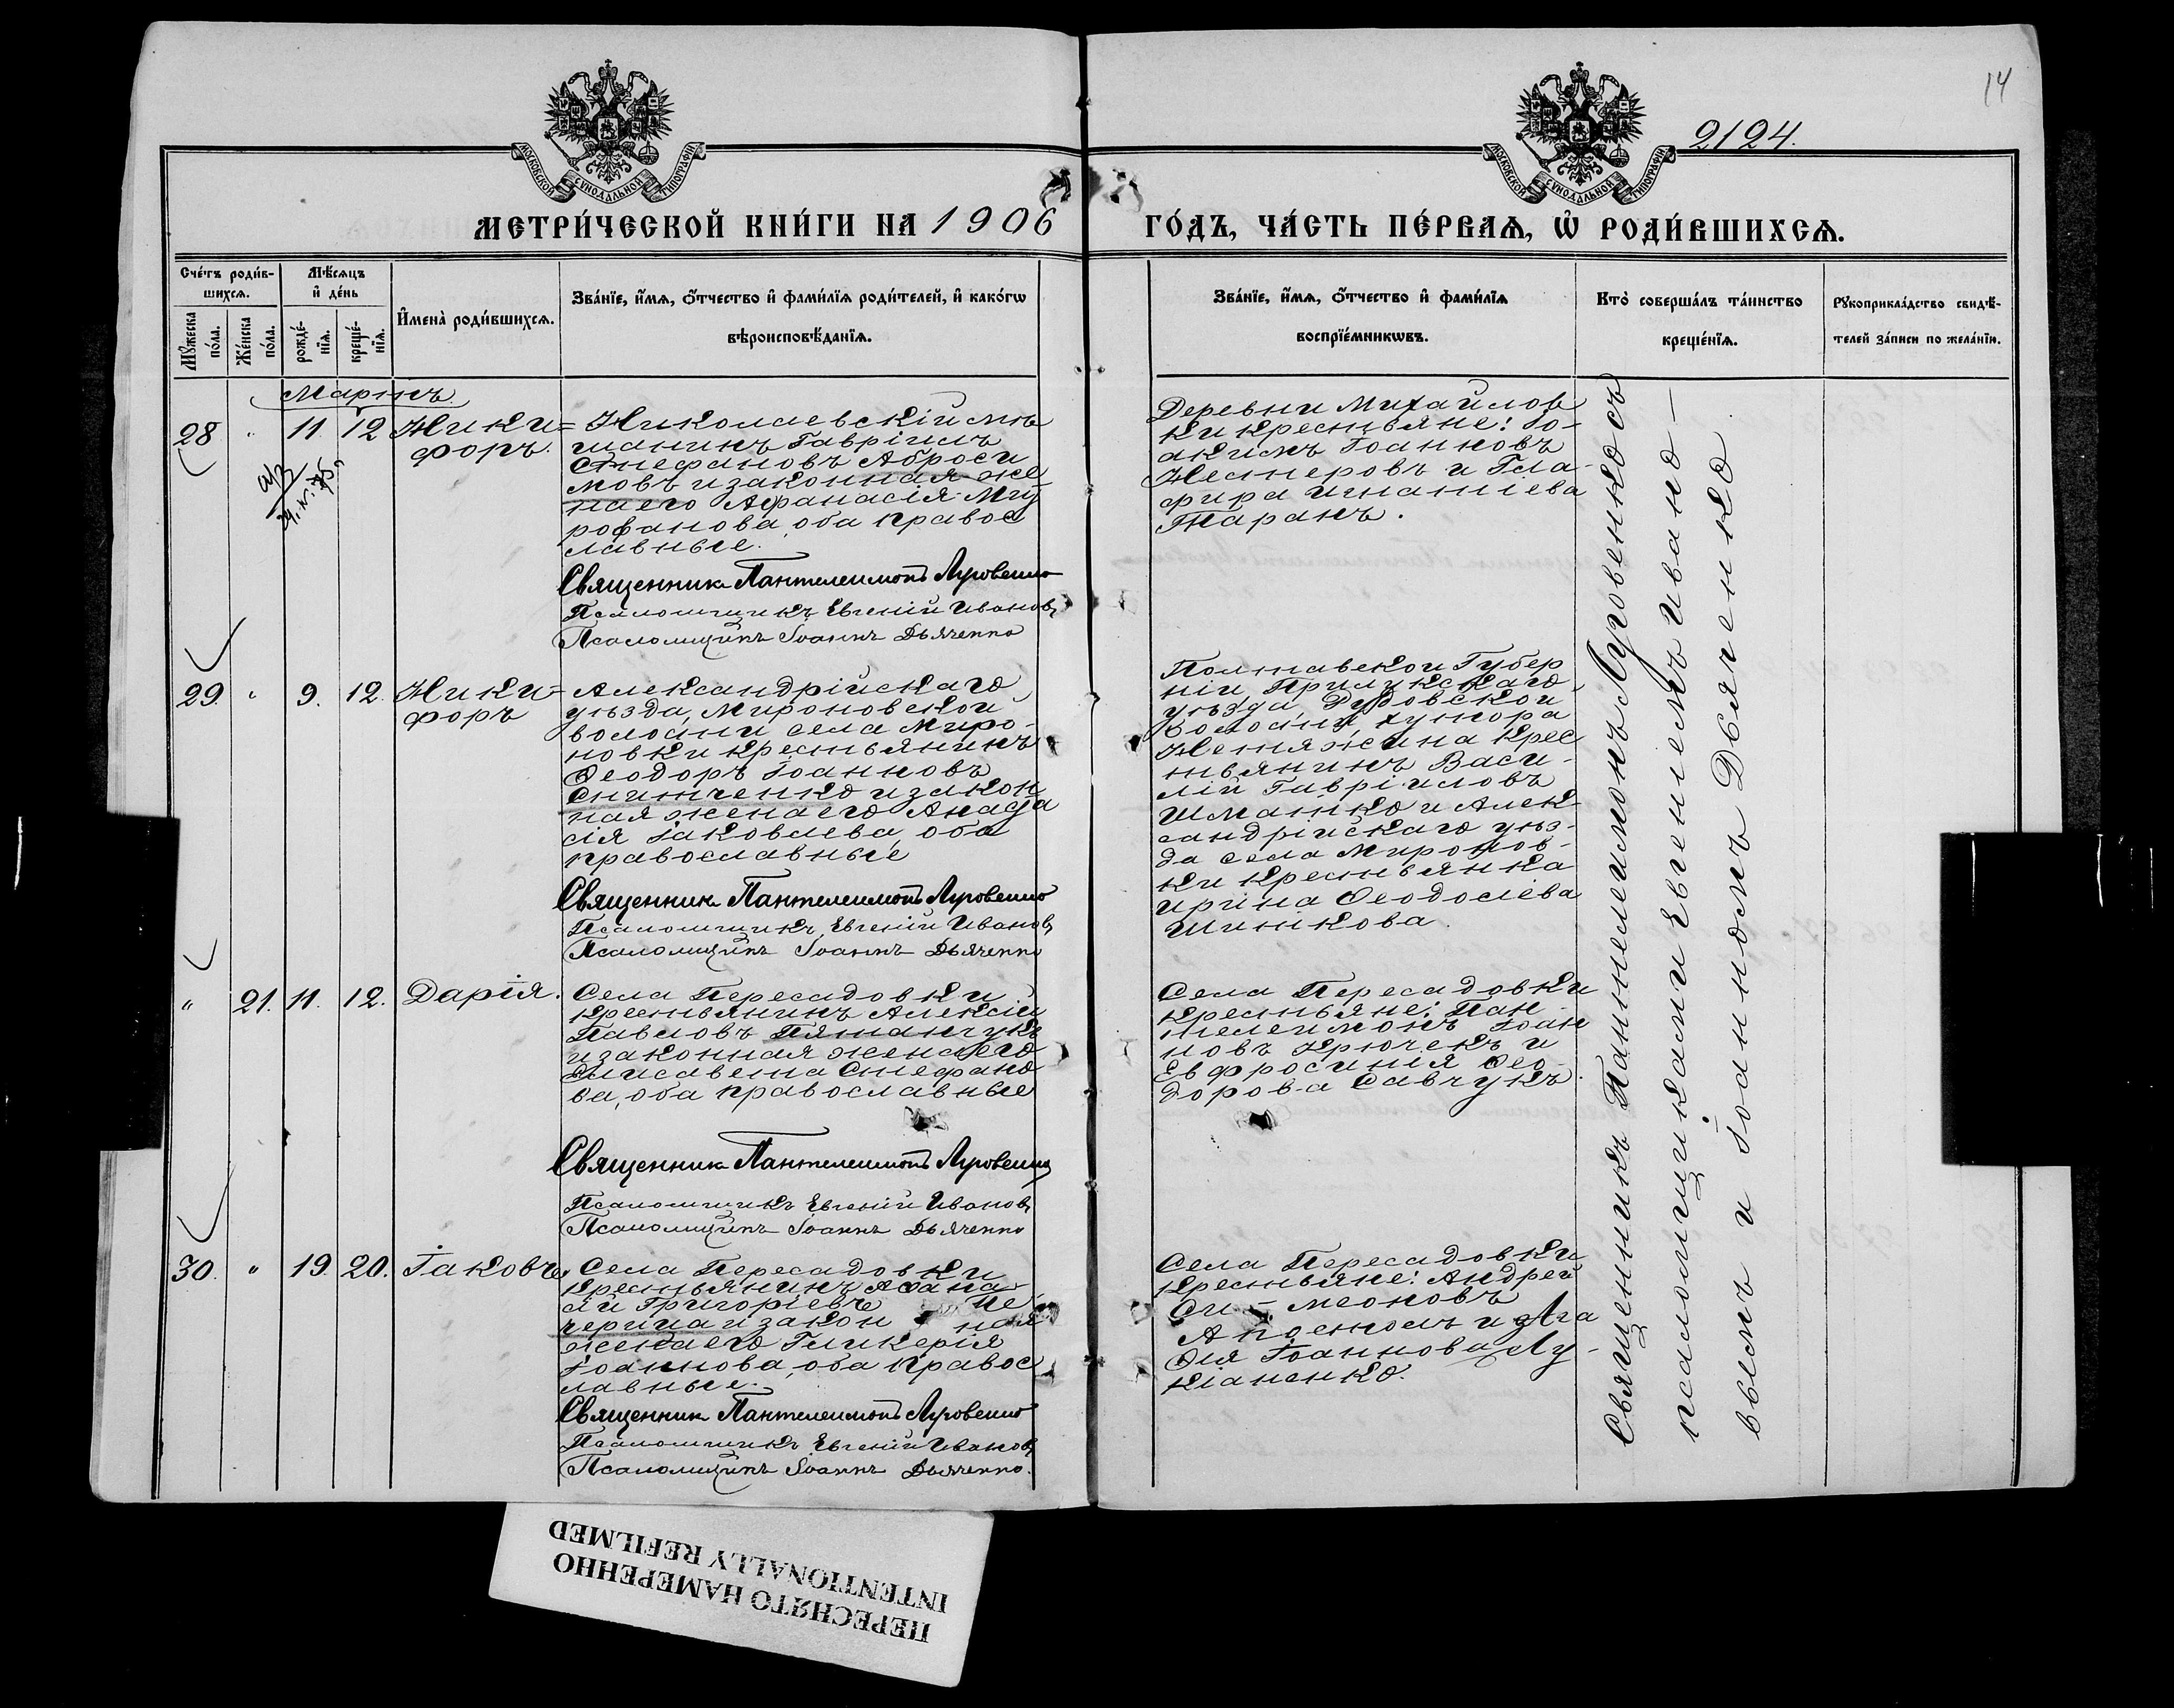 14
2124.
МОСКОВСКОЙ СѴНОДАЛЬНОЙ ТИПОГРАФІИ
МОСКОВСКОЙ СѴНОДАЛЬНОЙ ТИПОГРАФІИ
МЕТРИ́ЧЕСКОЙ КНИ́ГИ НА 1906 ГО́ДЪ, ЧА́СТЬ ПЕ́РВАѦ, Ѡ҆ РОДИ́ВШИХСѦ.
Сче́тъ роди́в-
шихсѧ.
Мꙋ́жеска по́ла.
Же́нска по́ла.
Мѣ́сѧцъ
и҆ де́нь
рожде́-
нїѧ.
креще́-
нїѧ.
И҆мена̀ роди́вшихсѧ.
Зва́нїе, и҆́мѧ, ѻ҆́тчество и҆ фами́лїѧ роди́телей, и҆ како́гѡ
вѣроисповѣ́данїѧ.
Зва́нїе, и҆́мѧ, ѻ҆́тчество и҆ фами́лїѧ
воспрїе́мникѡвъ.
Кто̀ соверша́лъ та́инство
креще́нїѧ.
Рꙋкоприкла́дство свидѣ́-
телей за́писи по жела́нїи.
Мартъ
28 " 11. 12 Ники=
форъ.
Николаевскій мѣ
щанинъ Гавріилъ
Стефановъ Аброси
мовъ и законная же
на его Афанасія Мит
рофанова, оба правос
лавные.
Священникъ Пантелеимонъ Луговенко
Псаломщикъ Евгеній Иванов
Псаломщикъ Іоаннъ Дьяченко
Деревни Михайлов
ки крестьяне: Іо-
акимъ Іоанновъ
Нестеровъ и Гла-
фира Игнатіева
Таранъ.
29. " 9. 12. Ники=
форъ
Александрійскаго
уѣзда, Мироновской
волости, села Миро-
новки крестьянинъ
Ѳеодоръ Іоанновъ
Снитченко и закон
ная жена его Анаста
сія Іаковлева, оба
православные
Священникъ Пантелеимонъ Луговенко
Псаломщикъ Евгеній Иванов
Псаломщикъ Іоаннъ Дьяченко
Полтавской Губер
ніи, Прилукскаго
уѣзда,
волости, хутора
крес
тьянинъ Васи-
лій Гавріиловъ
Шматко и Алек-
сандрійскаго уѣз-
да села Миронов-
ки крестьянка
Ирина Ѳеодосіева
" 21. 11. 12. Дарія.
Села Пересадовки
крестьянинъ Алексій
Павловъ
и законная жена его
Елисавета Стефано
ва, оба православные
Священникъ Пантелеимонъ Луговенко
Псаломщикъ Евгеній Иванов
Псаломщикъ Іоаннъ Дьяченко
Села Пересадовки
крестьяне: Пан
телеимонъ Іоан
новъ Крючекъ и
Евфросинія Ѳео-
дорова Савчукъ.
30. " 19. 20. Іаковъ
Села Пересадовки
крестьянинъ Аѳана-
сій Григоріевъ Пе
черица и закон ная
жена его Гликерія
Іоаннова, оба правос
лавные.
Священникъ Пантелеимонъ Луговенко
Псаломщикъ Евгеній Иванов
Псаломщикъ Іоаннъ Дьяченко.
Села Пересадовки
крестьяне: Андрей
Си- меоновъ
Апостолъ и Ага
ѳія Іоаннова Лу-
кіаненко.
Священникъ Пантелеимонъ Луговенко съ
псаломщиками Евгеніемъ Ивано-
вымъ и Іоанномъ Дьяченко
ПЕРЕСНЯТО НАМЕРЕННО
INTENTIONALLY REFILMED